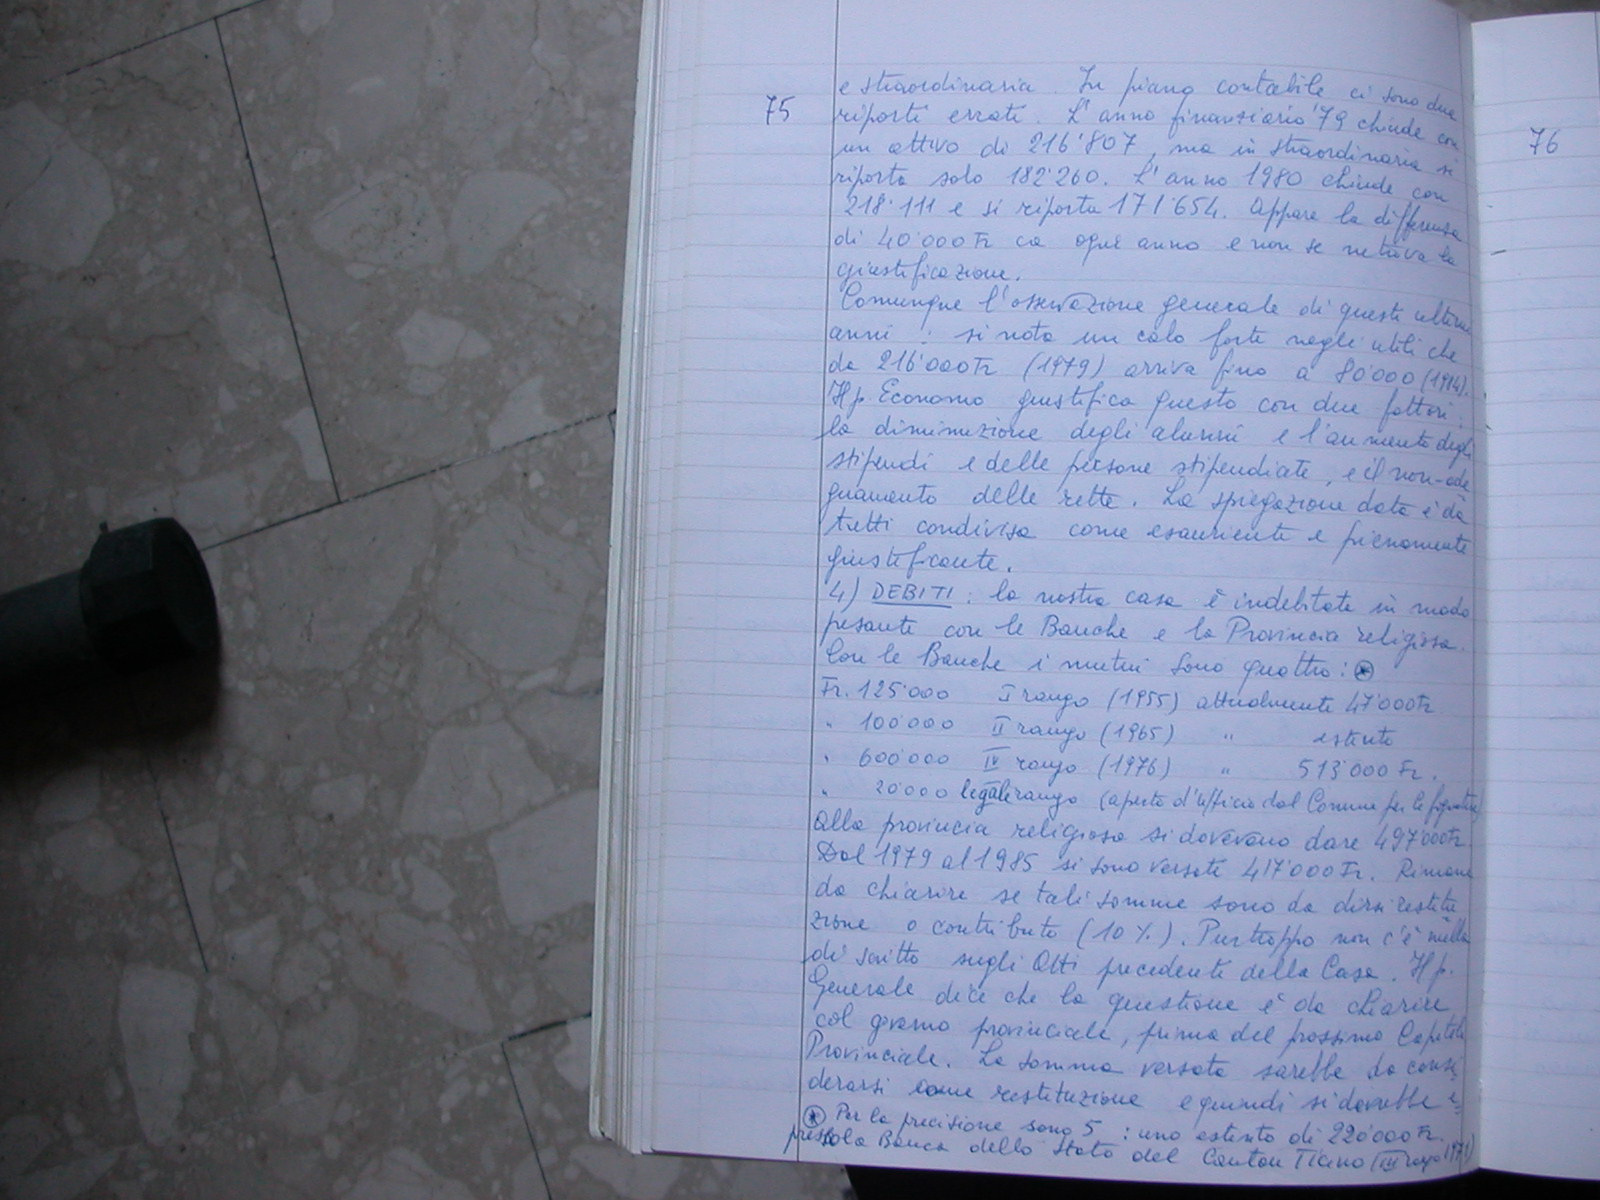 75
e straordinaria. In piano contabile ci sono due
riporti errati. L'anno finanziario '79 chiude con
un attivo di 216'807, ma in straordinaria si
riporta solo 182'260. L'anno 1980 chiude con
218'111 e si riporta 171'654. Appare la differenza
di 40'000 Fr ca ogni anno e non se ne trova la
giustificazione.
Comunque l'osservazione generale di questi ultimi
anni: si nota un calo forte negli utili che
da 216'000 Fr (1979) arriva fino a 80'000
Il p. Economo giustifica questo con due fattori:
la diminuzione degli alunni e l'aumento degli
stipendi e delle persone stipendiate, e il non-ade
guamento delle rette. La spiegazione data è da
tutti condivisa come esauriente e pienamente
giustificante.
4) DEBITI: la nostra casa è indebitata in modo
pesante con le Banche e la Provincia religiosa.
Con le Banche i mutui sono quattro: ⊛
Fr. 125'000 I rango (1955) attualmente 47'000 Fr
" 100'000 II rango (1965) " estinto
" 600'000 IV rango (1976) " 513'000 Fr.
" 20'000 legale rango (aperto d'ufficio dal Comune per le fognature)
Alla provincia religiosa si dovevano dare 497'000 Fr.
Dal 1979 al 1985 si sono versate 417'000 Fr. Rimane
da chiarire se tali somme sono da dirsi restitu
zione o contributo (10%). Purtroppo non c'è nulla
di scritto sugli Atti precedenti della Casa. Il p.
Generale dice che la questione è da chiarire
col governo provinciale, prima del prossimo Capitolo
Provinciale. La somma versata sarebbe da consi
derarsi come restituzione e quindi si dovrebbe
⊛ Per la precisione sono 5: uno estinto di 220'000 Fr.
presso la Banca dello Stato del Canton Ticino (III rango 1971)
76